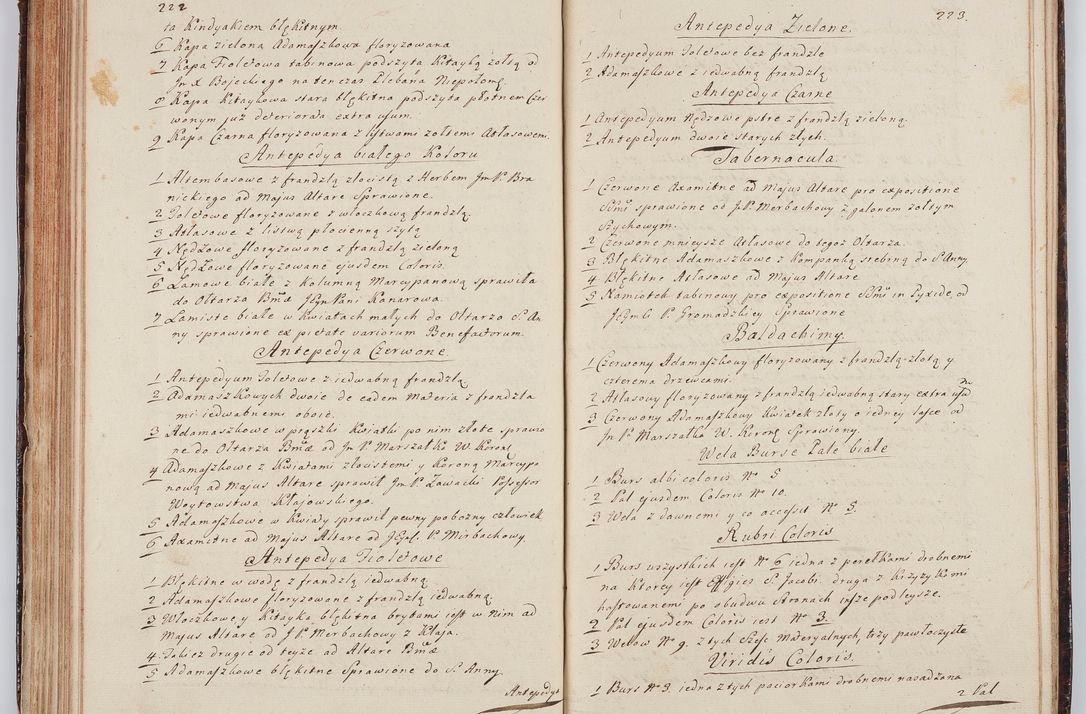 222
ta Kindyakiem błękitnym
6 Kapa zielona Adamaszkowa floryzowana
7 Kapa Fioletowa tabinowa podszyta Kitayką żołtą od
Jm X Bojeckiego na ten czas Plebana Niepołomę
8 Kapa Kitaykowa stara błękitna podszyta płotnem Czer
wonym już deteriorata extra usum.
9 Kapa Czarna floryzowana z listwami zołtemi Atłasowemi
Antepedya białego Koloru
1 Altembasowe z frandzlą złocistą z Herbem Jm P. Bra
nickiego ad Majus Altare Sprawione.
2 Toletowe floryzowane z włoczkową frandzlą.
3 Atłasowe z listwą płocienną szytą
4 Nędzowe floryzowane z frandzlą zieloną
5 Nędzowe floryzowane ejusdem Coloris.
6 Lamowe białe z Kolumną Marcypanową sprawiła
do Oltarza Bmæ JeymPani Kanarowa.
7 Lamiste białe w Kwiatach małych do Oltarza S. An
ny sprawione ex pietate variorum Benefactorum.
Antepedya Czerwone.
1 Antepedyum Toletowe z iedwabną frandzlą
2 Adamaszkowych dwoie de eadem Materia z frandzla
mi iedwabnemi oboie.
3 Adamaszkowe w prążki Kwiatki po nim złote sprawio
ne do Oltarza Bmæ od Jm P. Marszałka W. Koronę
4 Adamaszkowe z Kwiatami złocistemi y Koroną Marcypa
nową ad Majus Altare sprawił Jm P. Zawacki Possessor
Woytowstwa Kłajowskiego.
5 Adamaszkowe w Kwiady sprawił pewny pobozny człowiek
6 Axamitne ad Majus Altare od P. Mirbachowy.
Antepedya Fioletowe
1 Błękitne w wodę z frandzlą iedwabną.
2 Adamaszkowe floryzowane z frandzlą iedwabną.
3 Włoczkowe y Kitayka błękitna brytami iest w nim ad
Majus Altare od J P. Merbachowy z Kłaja.
4 Takiez drugie od teyże ad Altare Bmæ
5 Adamaszkowe błękitne Sprawione do S. Anny.
Antepedya
223.
Antepedya Zielone.
1 Antepedyum Toletowe bez frandzle
2 Adamaszkowe z iedwabną frandzlą
Antepedya Czarne
1 Antepedyum Nędzowe pstre z frandzlą zieloną.
2 Antepedyum dwoie starych złych.
Tabernacula.
1 Czerwone Axamitne ad Majus Altare pro expositione
SSmi sprawione od J.P. Merbachowy z galonem żołtym
Szychowym.
2 Czerwone mnieysze Atłasowe do tegoż Oltarza.
3 Błękitne Adamaszkowe z Kompanką srebrną do S. Anny.
4 Błękitne Atłasowe ad Majus Altare
5 Namiotek tabinowy pro expositione SSmi in Pyxide od
P. Gromadzkiey Sprawione
Baldachimy.
1 Czerwony Adamaszkowy floryzowany z frandzlą złotą y
czterema drzewcami.
2 Atłasowy floryzowany z frandzlą iedwabną stary extra usū
3 Czerwony Adamaszkowy Kwiatek złoty o iedney lasce od
Jm P. Marszałka W. Koronę Sprawiony.
Wela Burse Pale białe
1 Burs albi coloris No 5
2 Pal ejusdem Coloris No 10.
3 Wela z dawnemi y co accessit No 5.
Rubri Coloris
1 Burs wszystkich iest No 6 iedna z perełkami drobnemi
na Ktorey iest Effigies S. Jacobi. druga z Krzyżykami
haftowanemi po obudwu stronach insze podleysze.
2 Pal ejusdem Coloris iest No 3.
3 Welow No 9. z tych sześć materyalnych, trzy pawłoczyste
Viridis Coloris.
1 Burs No 3. iedna z tych paciorkami drobnemi nasadzona
2 Pal